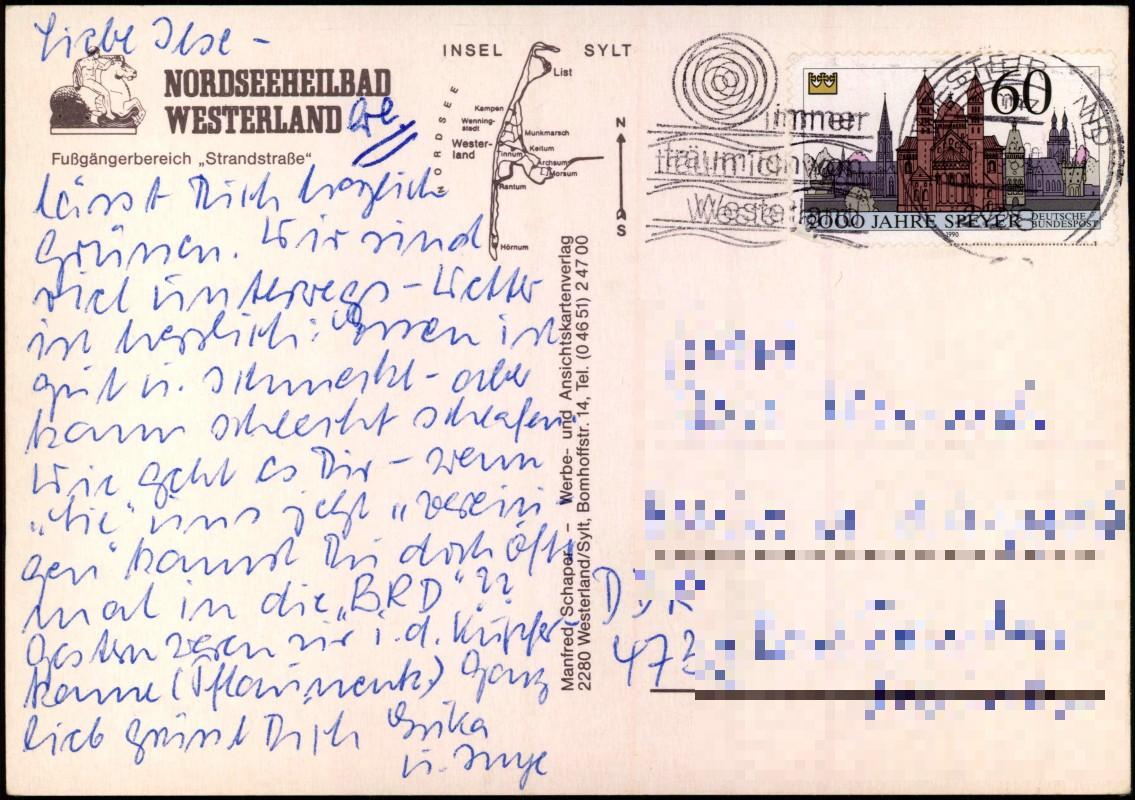 Liebe Ilse -
NORDSEEHEILBAD
WESTERLAND
Fußgängerbereich „Strandstraße“
lässt Dich herzlich
grüssen. Wir sind
viel unterwegs - Wetter
ist herrlich. Essen ist
gut u. schmeckt - aber
kann schlecht schlafen.
Wie geht es Dir - wenn
„Sie“ uns jetzt „verein-
gen“ kannst Du doch öfter
mal in die „BRD“??
Gestern waren wir i. d. Kupfer-
kanne ( ) Ganz
lieb grüsst Dich Erika
u. Inge
INSEL SYLT
NORDSEE
List
Kampen
Wenning-
stadt
Wester-
land
Munkmarsch
Keitum
Tinnum
Archsum
Morsum
Rantum
Hörnum
N
S
Manfred Schaper - Werbe- und Ansichtskartenverlag
2280 Westerland/Sylt, Bomhoffstr. 14, Tel. (0 46 51) 2 47 00
immer
träum ich von
Westerland
60
2000 JAHRE SPEYER
DEUTSCHE
BUNDESPOST
1990